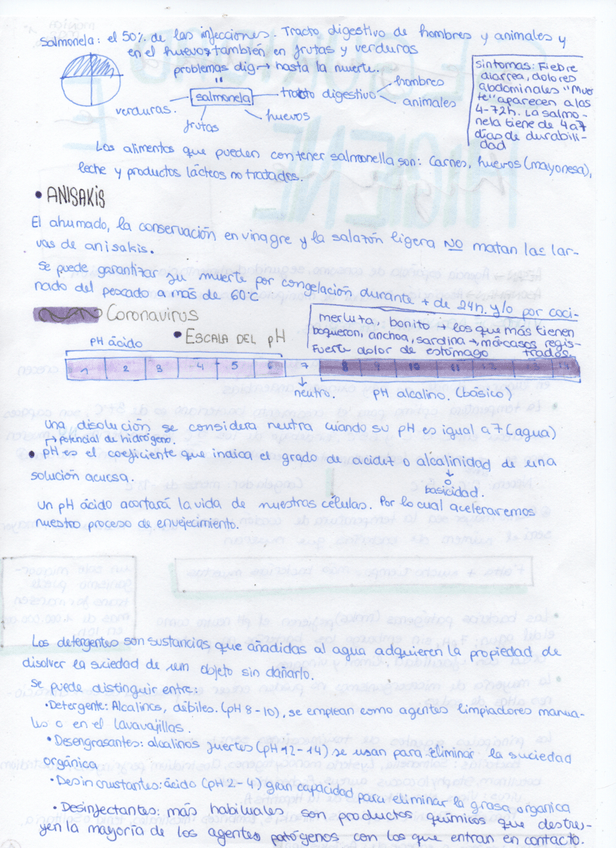 Salmonela: el 50% de las infecciones. Tracto digestivo de hombres y animales y
en el huevos también en frutas y verduras
problemas dig → hasta la muerte.
salmonela
tracto digestivo
hombres
animales
verduras.
frutas
huevos
síntomas: Fiebre
diarrea, dolores
abdominales "Muer
te" aparecen a las
4-72h. La salmo-
nela tiene de 4 a 7
días de durabili-
dad
Los alimentos que pueden contener salmonella son: Carnes, huevos (mayonesa),
leche y productos lácteos no tratados.
• ANISAKIS
El ahumado, la conservación en vinagre y la salazón ligera NO matan las lar-
vas de anisakis.
Se puede garantizar su muerte por congelación durante + de 24h. y/o por coci-
nado del pescado a más de 60°C
Coronavirus
merluza, bonito → los que más tienen
boqueron, anchoa, sardina → márcasos regis-
Fuerte dolor de estómago trados.
• ESCALA DEL pH
PH ácido
1 2 3 4 5 6 7 8 9 10 11 12 13 14
neutro. PH alcalino. (básico)
Una disolución se considera neutra cuando su pH es igual a 7 (agua)
→ potencial de hidrógeno.
• pH es el coeficiente que indica el grado de acidez o alcalinidad de una
solución acuosa.
o
basicidad.
Un pH ácido acortará la vida de nuestras células. Por lo cual aceleraremos
nuestro proceso de envejecimiento.
Los detergentes son sustancias que añadidas al agua adquieren la propiedad de
disolver la suciedad de un objeto sin dañarlo.
Se puede distinguir entre:
• Detergente: Alcalinos, débiles. (pH 8-10), se emplean como agentes limpiadores manua-
les o en el lavavajillas.
• Desengrasantes: alcalinos fuertes (pH 12-14) se usan para eliminar la suciedad
orgánica
• Desincrustantes: ácido (pH 2-4) gran capacidad para eliminar la grasa organica
• Desinfectantes: más habituales son productos químicos que destru-
yen la mayoría de los agentes patógenos con los que entran en contacto.